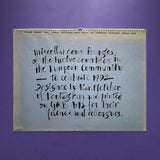 Miscellaneous Images
of the twelve countries in
the European Community
to celebrate 1992
Designed by Alan Fletcher
of Pentagram and printed
by G&B Arts for their
friends and colleagues.